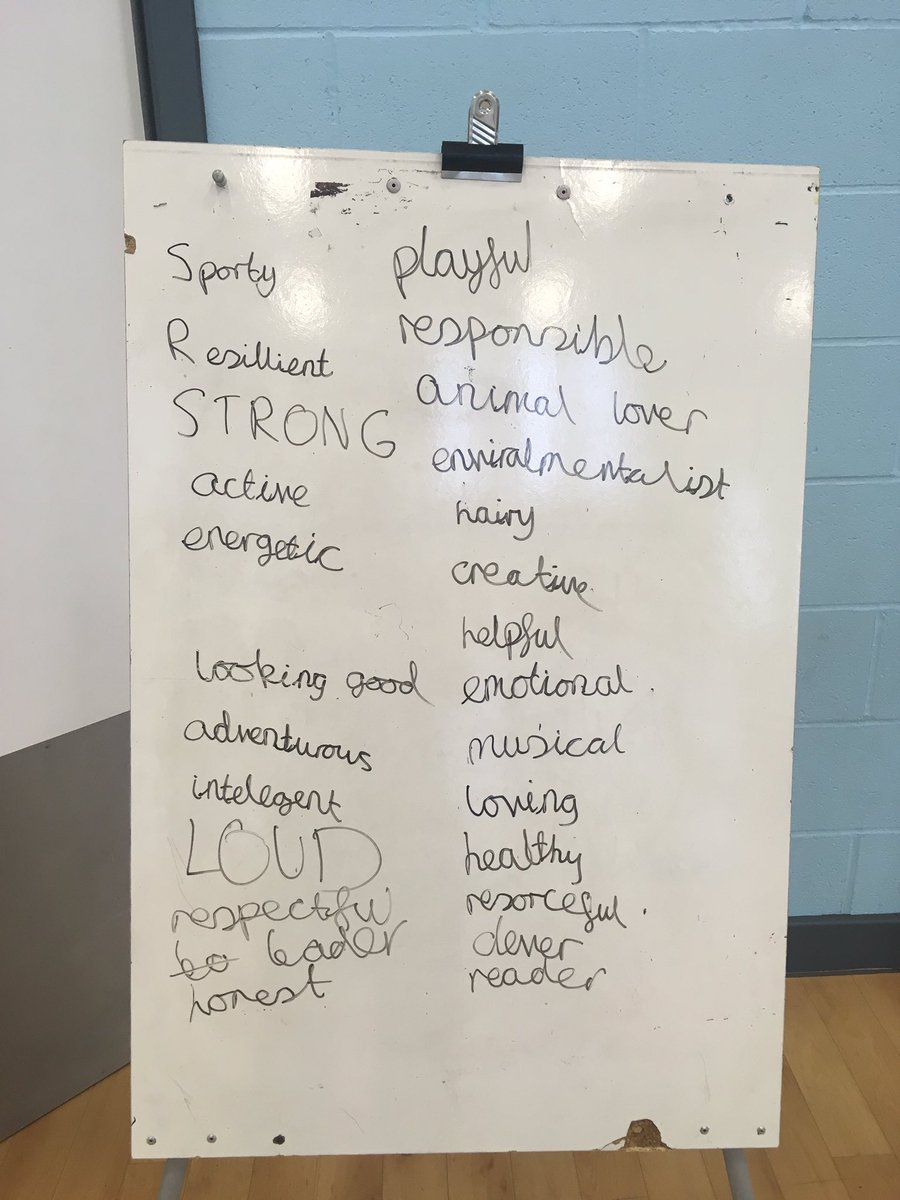 Sporty
Resillient
STRONG
active
energetic
looking good
adventurous
intelegent
LOUD
respectful
leader
honest
playful
responsible
animal lover
enviralmentalist
hairy
creative
helpful
emotional.
musical
loving
healthy
resorceful.
clever
reader